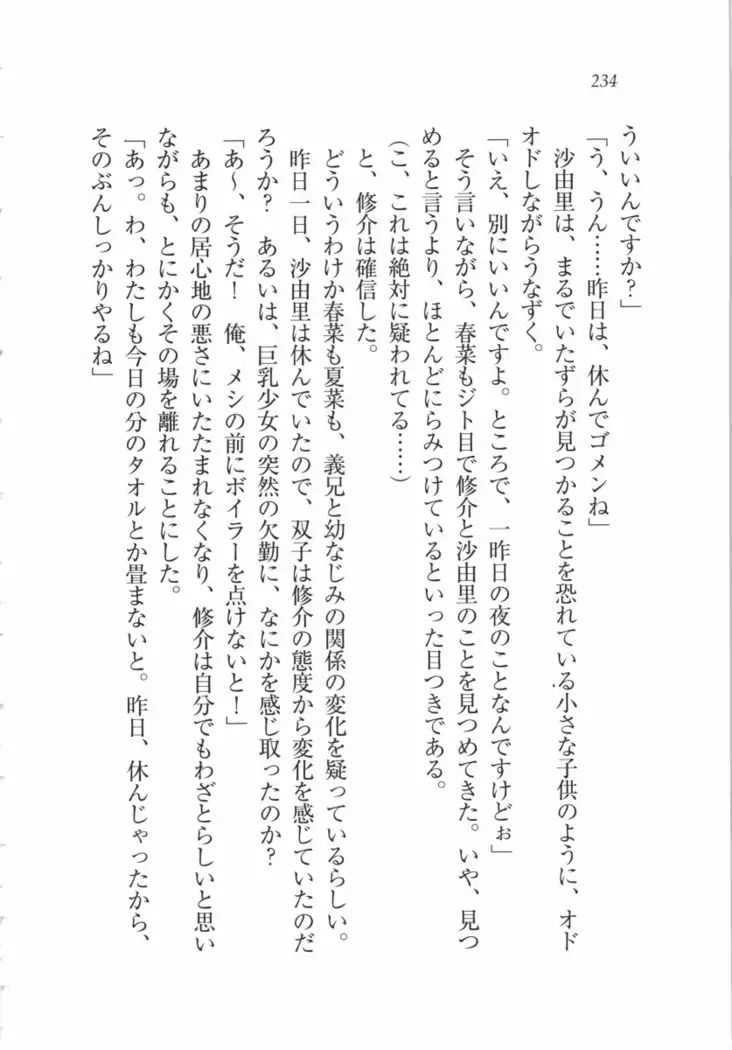 234
ういいんですか？」
「う、うん……昨日は、休んでゴメンね」
沙由里は、まるでいたずらが見つかることを恐れている小さな子供のように、オド
オドしながらうなずく。
「いえ、別にいいんですよ。ところで、一昨日の夜のことなんですけどぉ」
そう言いながら、春菜もジト目で修介と沙由里のことを見つめてきた。いや、見つ
めると言うより、ほとんどにらみつけているといった目つきである。
(こ、これは絶対に疑われてる……)
と、修介は確信した。
どういうわけか春菜も夏菜も、義兄と幼なじみの関係の変化を疑っているらしい。
昨日一日、沙由里は休んでいたので、双子は修介の態度から変化を感じていたのだ
ろうか？　あるいは、巨乳少女の突然の欠勤に、なにかを感じ取ったのか？
「あ～、そうだ！　俺、メシの前にボイラーを点けないと！」
あまりの居心地の悪さにいたたまれなくなり、修介は自分でもわざとらしいと思い
ながらも、とにかくその場を離れることにした。
「あっ。わ、わたしも今日の分のタオルとか畳まないと。昨日、休んじゃったから、
そのぶんしっかりやるね」